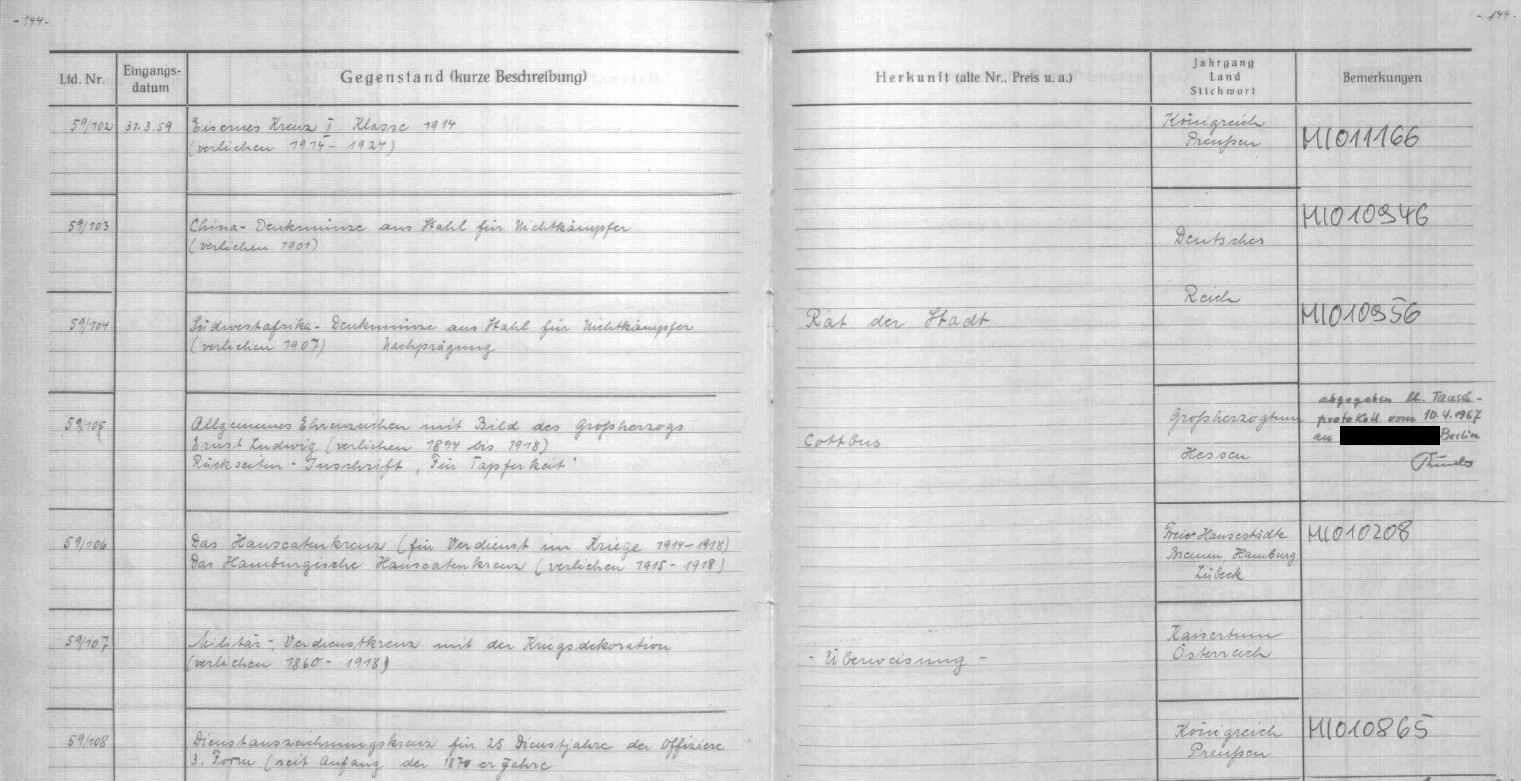 - 144 -
- 144 -
Lfd. Nr.
Eingangs-
datum
Gegenstand (kurze Beschreibung)
Herkunft (alte Nr., Preis u. a.)
Jahrgang
Land
Stichwort
Bemerkungen
59/102 31.3.59 Eisernes Kreuz I. Klasse 1914
(verliehen 1914 - 1924)
Königreich
Preußen
MI011166
59/103 China-Denkmünze aus Stahl für Nichtkämpfer
(verliehen 1901)
Deutsches
MI010946
59/104 Südwestafrika-Denkmünze aus Stahl für Nichtkämpfer
(verliehen 1907) Nachprägung
Rat der Stadt
Reich
MI010956
59/105 Allgemeines Ehrenzeichen mit Bild des Großherzogs
Ernst Ludwig (verliehen 1894 bis 1918)
Rückseiten-Inschrift "Für Tapferkeit"
Cottbus
Großherzogtum
Hessen
abgegeben lt. Tausch-
protokoll vom 10.4.1967
an Berlin
59/106 Das Hanseatenkreuz (für Verdienst im Kriege 1914-1918)
Das Hamburgische Hanseatenkreuz (verliehen 1915-1918)
Freie Hansestädte
Bremen Hamburg
Lübeck
MI010208
59/107 Militär-Verdienstkreuz mit der Kriegsdekoration
(verliehen 1860 - 1918)
- Überweisung -
Kaisertum
Österreich
59/108 Dienstauszeichnungskreuz für 25 Dienstjahre der Offiziere
3. Form (seit Anfang der 1870er Jahre
Königreich
Preußen
MI010865